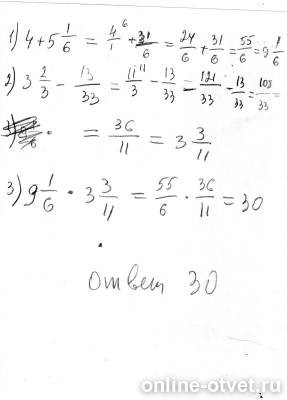 1) 4 + 5 1/6 = 4/1 ⁶ + 31/6 = 24/6 + 31/6 = 55/6 = 9 1/6
2) 3 2/3 - 13/33 = 11/3 ¹¹ - 13/33 = 121/33 - 13/33 = 108/33
= 36/11 = 3 3/11
3) 9 1/6 · 3 3/11 = 55/6 · 36/11 = 30
ответ 30
online-otvet.ru